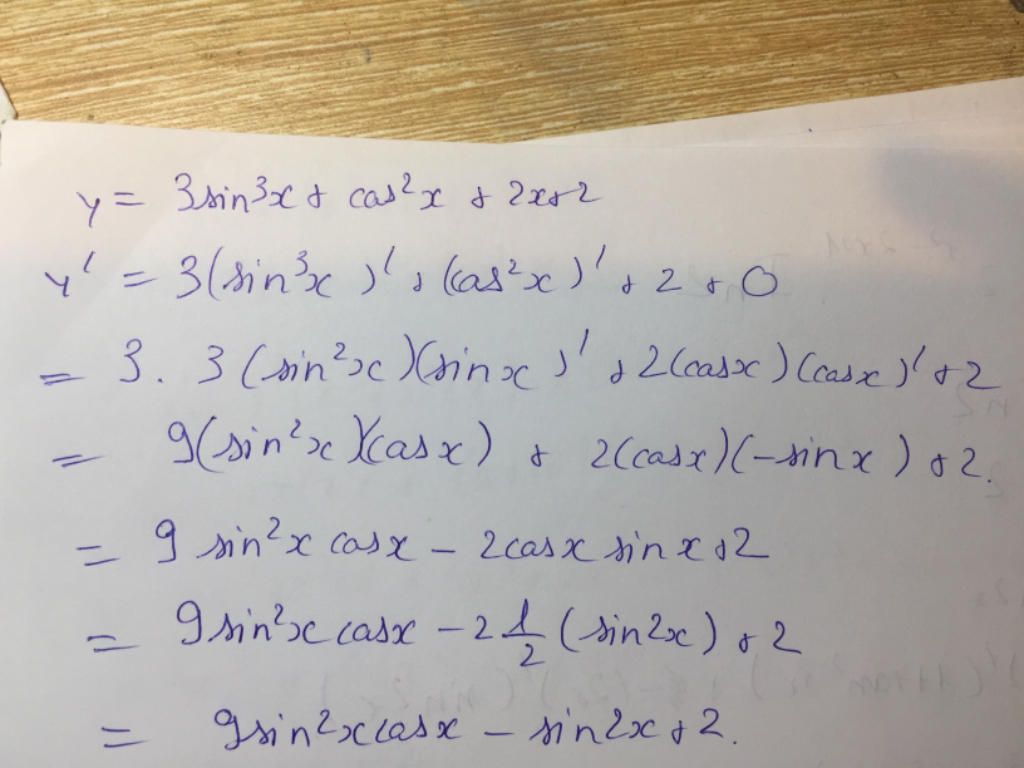 y = 3sin³x + cos²x + 2x+2
y' = 3(sin³x)' + (cos²x)' + 2 + 0
= 3. 3 (sin²x)(sinx)' + 2(cosx)(cosx)' + 2
= 9(sin²x)(cosx) + 2(cosx)(-sinx) + 2.
= 9 sin²x cosx - 2cosx sinx + 2
= 9sin²x cosx - 2 1/2 (sin2x) + 2
= 9sin²xcosx - sin2x + 2.